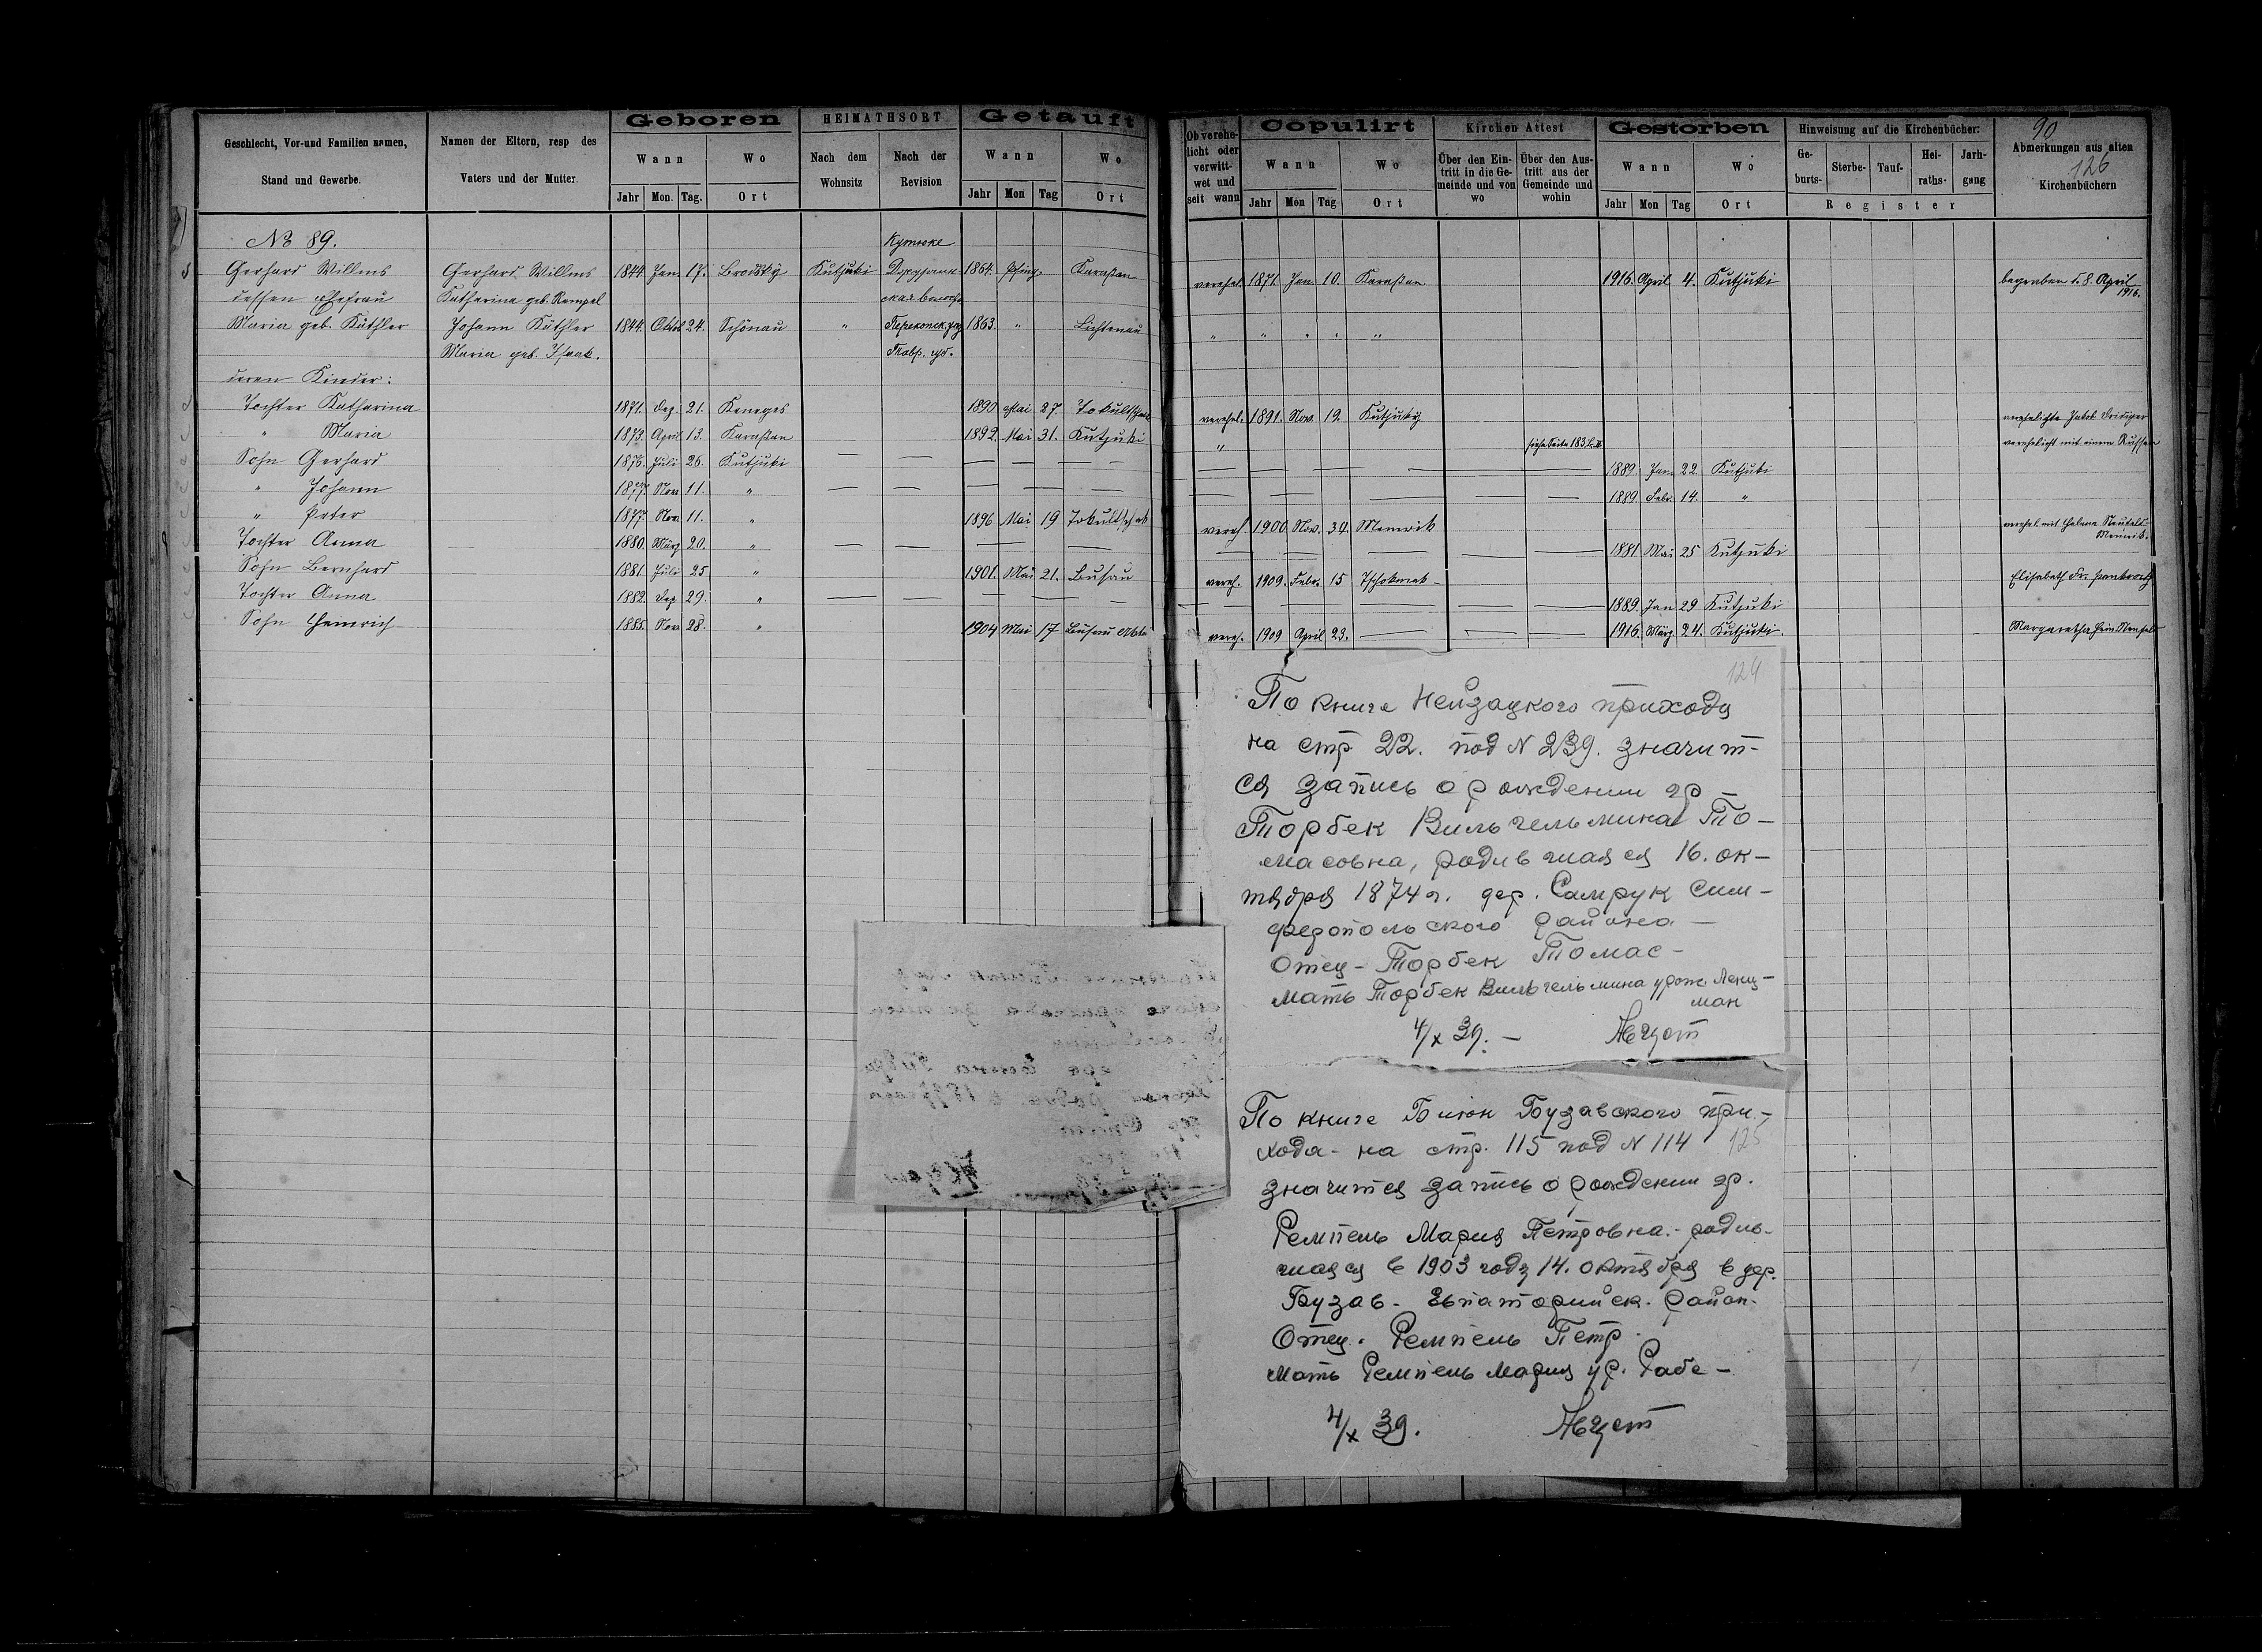 Geschlecht, Vor-und Familien namen,
Stand und Gewerbe.
Namen der Eltern, resp des
Vaters und der Mutter
Geboren
Wann
Wo
Jahr Mon. Tag. Ort
HEIMATHSORT
Nach dem Wohnsitz
Nach der Revision
Getauft
Wann
Wo
Jahr Mon Tag Ort
Ob verehe-
licht oder
verwitt-
wet und
seit wann
Copulirt
Wann
Wo
Jahr Mon Tag Ort
Kirchen Attest
Über den Ein-
tritt in die Ge-
meinde und von
wo
Über den Aus-
tritt aus der
Gemeinde und
wohin
Gestorben
Wann
Wo
Jahr Mon Tag Ort
Hinweisung auf die Kirchenbücher:
Ge-
burts-
Sterbe-
Tauf-
Hei-
raths-
Jarh-
gang
Register
90
Abmerkungen aus alten
126
Kirchenbüchern
№ 89. Кутюке
Gerhard Willms Gerhard Willms 1844. Jan. 17. Brodsky Kutjuki 1864. Pfing. Karaßan verehel. 1871. Jan. 10. Karaßan 1916. April 4. Kutjuki begraben d. 8. April 1916.
dessen Ehefrau Katharina geb. Rempel ская волость
Maria geb. Köthler Johann Köthler 1844. Oktb 24. Schönau " Перекопск. уез 1863. " Lichtenau " " " " "
Maria geb. Isaak. Тавр. губ.
deren Kinder:
Tochter Katharina 1871. Dez. 21. Keneges 1890 Mai 27. Tokultschak verehel. 1891. Nov. 19. Kutjuky verehelicht Jakob Dridiger
" Maria 1873. April 13. Karaßan 1892. Mai 31. Kutjuki " siehe Seite 183. verehelicht mit einem Russen
Sohn Gerhard 1876. Juli 26. Kutjuki 1889. Jan. 22. Kutjuki
" Johann 1877. Nov. 11. " 1889. Febr. 14. "
" Peter 1877. Nov. 11. " 1896 Mai 19 Tokultschak vereh. 1900. Nov. 30. Memrik verehel. mit Helena Memrik.
Tochter Anna 1880. März 20. " 1881 Mai 25 Kutjuki
Sohn Bernhard 1881 Juli 25 " 1901. Mai 21. Busau vereh. 1909. Febr. 15 Tschokmak Elisabeth
Tochter Anna 1882. Dez. 29. " 1889. Jan 29 Kutjuki
Sohn Heinrich 1885. Nov. 28. " 1904 Mai 17 Busau vereh. 1909 April 23. 1916. März 24. Kutjuki. Margaretha
124
По книге Нейзацкого прихода
на стр 22. под N 239. значит-
ся запись о рождении гр
Торбек Вильгельмина То-
масовна, родившаяся 16. ок-
тября 1874 г. дер. Самрук Сим-
феропольского района
Отец - Торбек Томас -
Мать Торбек Вильгельмина урож. Ленц-
ман
4/x 39. -
По книге Биюк Бузавского при-
хода - на стр. 115 под N 114 125
значится запись о рождении гр.
Ремпель Мария Петровна. - родив-
шаяся в 1903 году 14. октября в дер.
Бузав - Евпаторийск. район.
Отец. Ремпель Петр
Мать Ремпель Мария ур. Рабе -
4/x 39.